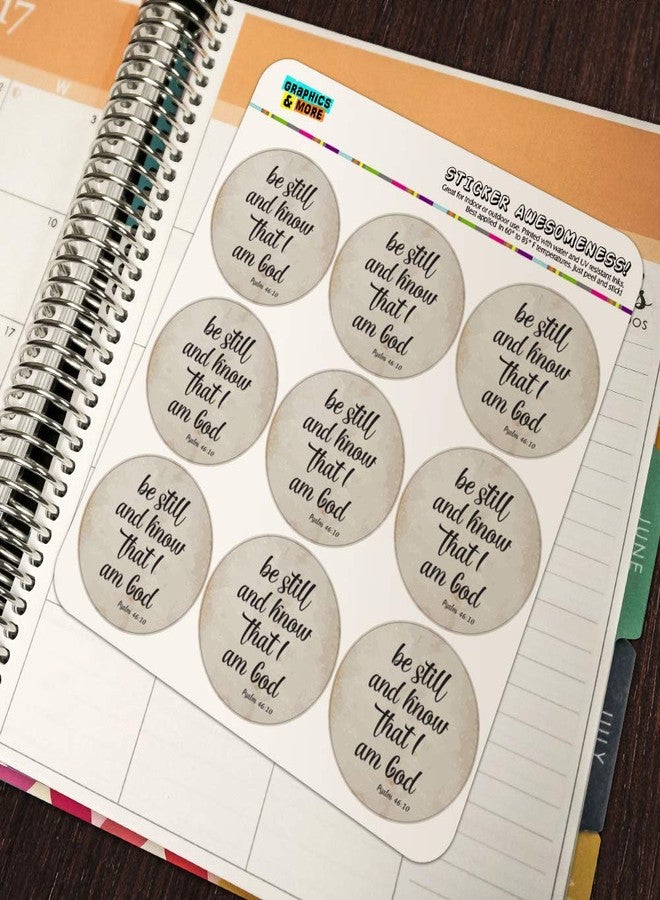 17
W
10
17
GRAPHICS
& MORE
STICKER AWESOMENESS!
Great for indoor or outdoor use. Printed with water and UV resistant inks.
Best applied in 60° to 85° F temperatures. Just peel and stick!
be still
and know
that I
am God
Psalm 46:10
be still
and know
that I
am God
Psalm 46:10
be still
and know
that I
am God
Psalm 46:10
be still
and know
that I
am God
Psalm 46:10
be still
and know
that I
am God
Psalm 46:10
be still
and know
that I
am God
Psalm 46:10
be still
and know
that I
am God
Psalm 46:10
be still
and know
that I
am God
Psalm 46:10
be still
and know
that I
am God
Psalm 46:10
JUNE
JULY